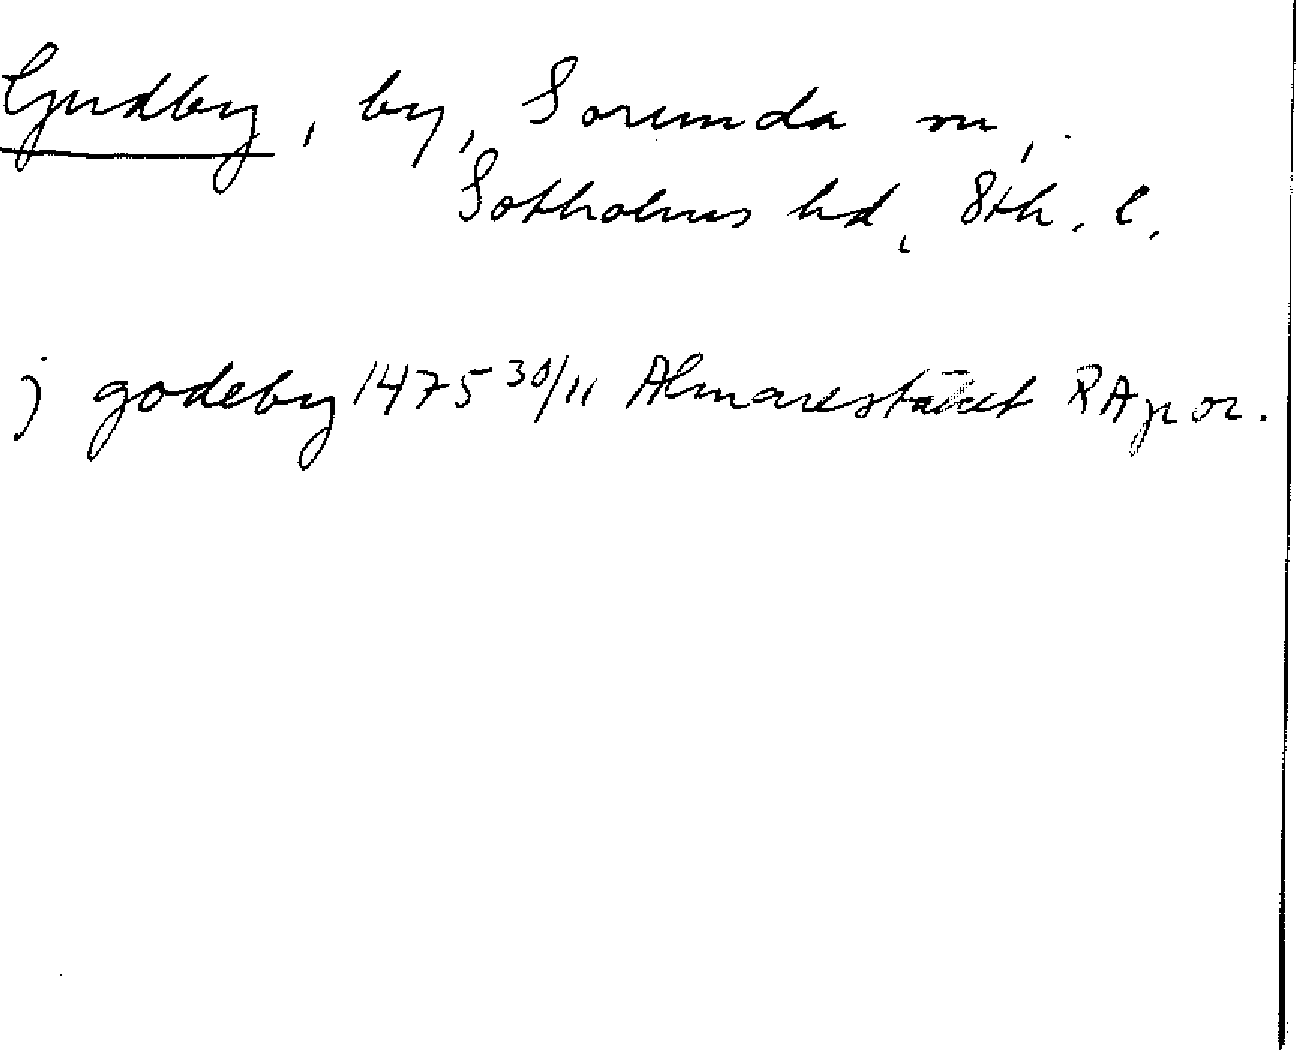 Gudby, by, Sorunda sn,
Sotholms hd, Sth. l.
j godeby 1475 30/11 Almarestäket RAp or.